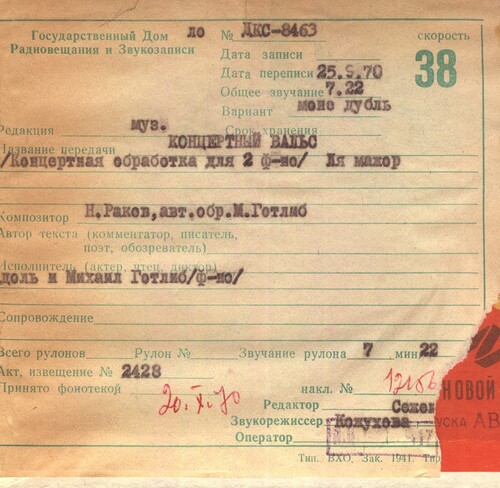 Государственный Дом ло № ДКС-8463 скорость
Радиовещания и Звукозаписи Дата записи 38
Дата переписи 25.9.70
Общее звучание 7.22
Вариант моно дубль
Редакция муз. Срок хранения
Название передачи КОНЦЕРТНЫЙ ВАЛЬС
/Концертная обработка для 2 ф-но/ Ля мажор
Композитор Н.Раков,авт.обр.М.Готлиб
Автор текста (комментатор, писатель,
поэт, обозреватель)
Исполнитель (актер, чтец, диктор)
доль и Михаил Готлиб/ф-но/
Сопровождение
Всего рулонов Рулон № Звучание рулона 7 мин 22
Акт, извещение № 2428
Принято фонотекой 20.X.70 накл. №
Редактор Семен
Звукорежиссер Кожухова
Оператор
НОВОЙ
УСКА АВ
Тип. ВХО, Зак. 1941. Тир